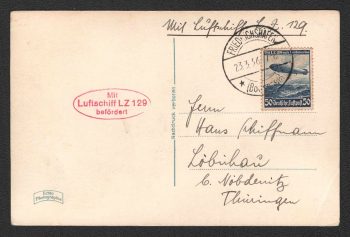 Mit Luftschiff L.Z. 129.
FRIEDRICHSHAFEN
23.3.36
Mit
Luftschiff LZ 129
befördert
50 Deutsche Luftpost 50
Nachdruck verboten
Herrn
Hans Schiffmann
Löbichau
b. Nöbdenitz
Thüringen
Echte
Photographie